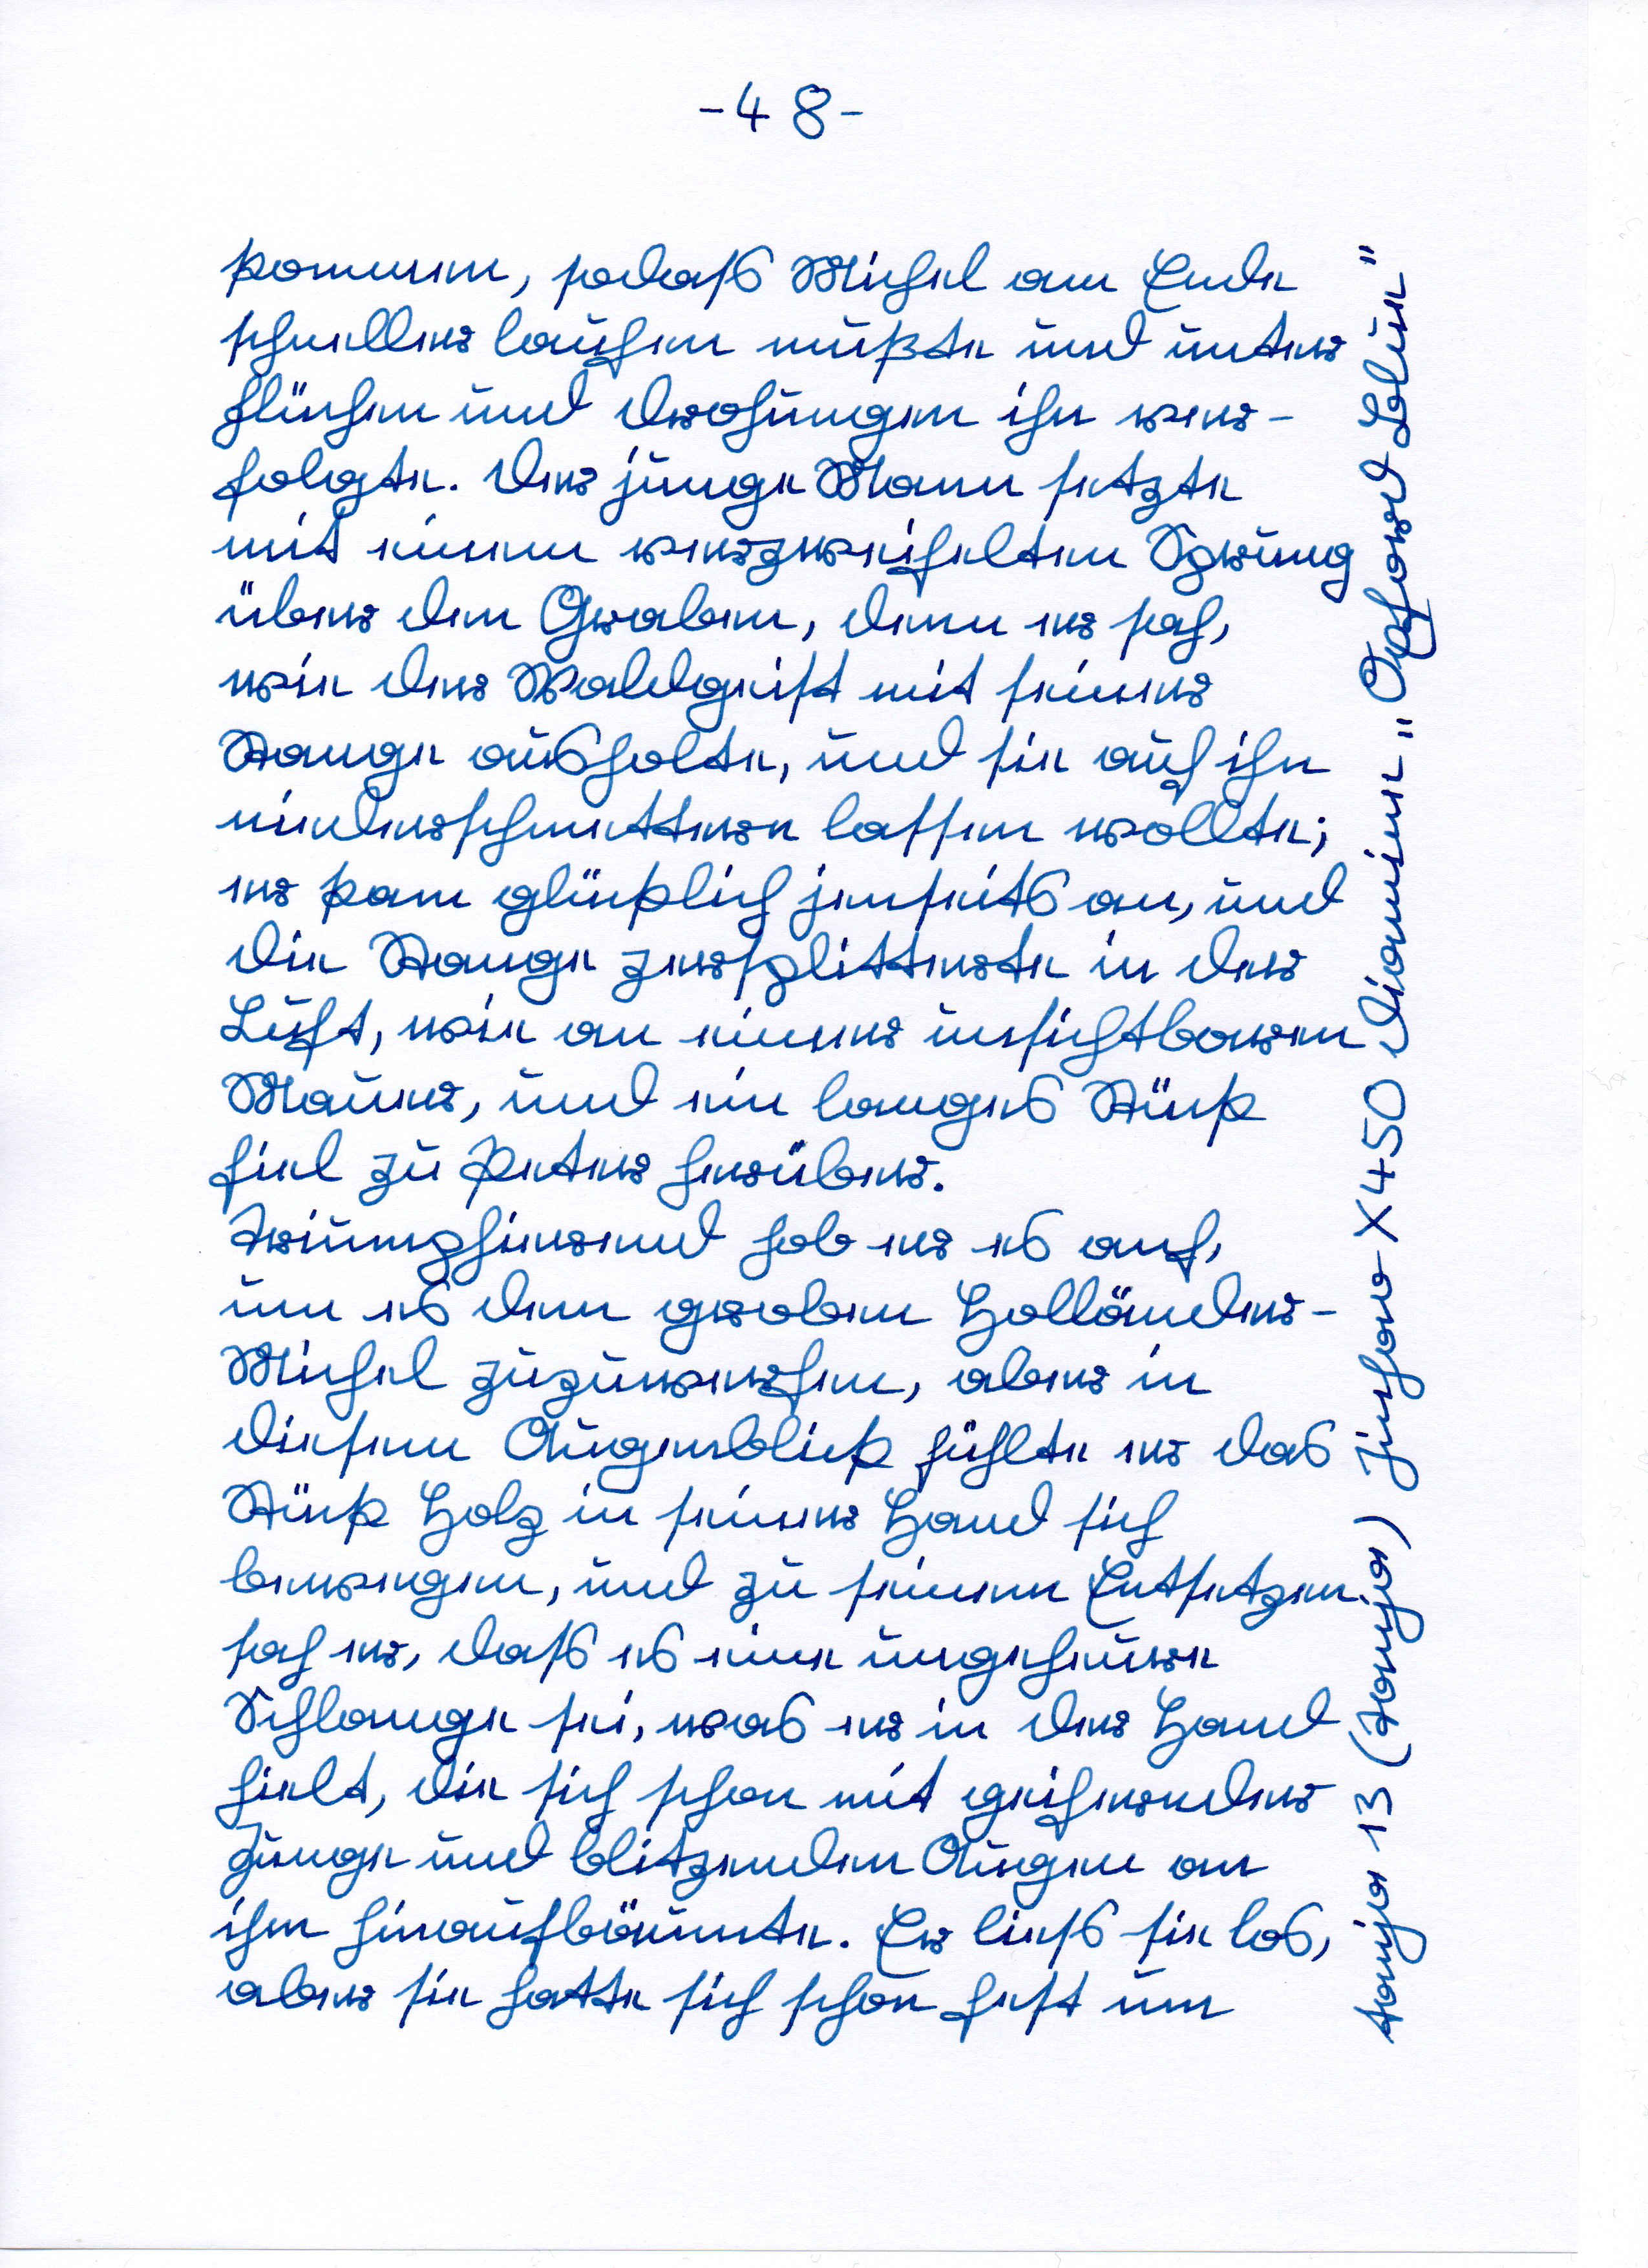 -48-
kommen, sodass Michel am Ende
schneller laufen mußte und unter
flüchen und drohungen ihn ver-
folgte. Der junge Mann setzte
mit einem verzweifelten Sprung
über den Graben, denn er sah,
wie der Waldgeist mit seiner
Stange ausholte, und sie auf ihn
niederschmettern lassen wollte;
er kam glücklich jenseits an, und
die Stange zersplitterte in der
Luft, wie an einer unsichtbaren
Mauer, und ein langes Stück
fiel zu Peter herüber.
Triumphierend hob er es auf,
um es dem groben Holländer-
Michel zuzuwerfen, aber in
diesem Augenblick fühlte er das
Stück Holz in seiner Hand sich
bewegen, und zu seinem Entsetzen
sah er, dass es eine ungeheure
Schlange sei, was er in der Hand
hielt, die sich schon mit geifernder
Zunge und blitzenden Augen an
ihm hinaufbäumte. Er liess sie los,
aber sie hatte sich schon fest um
tanja 13 (Tanja) jinhao X450 Diamine "Oxford Blue"